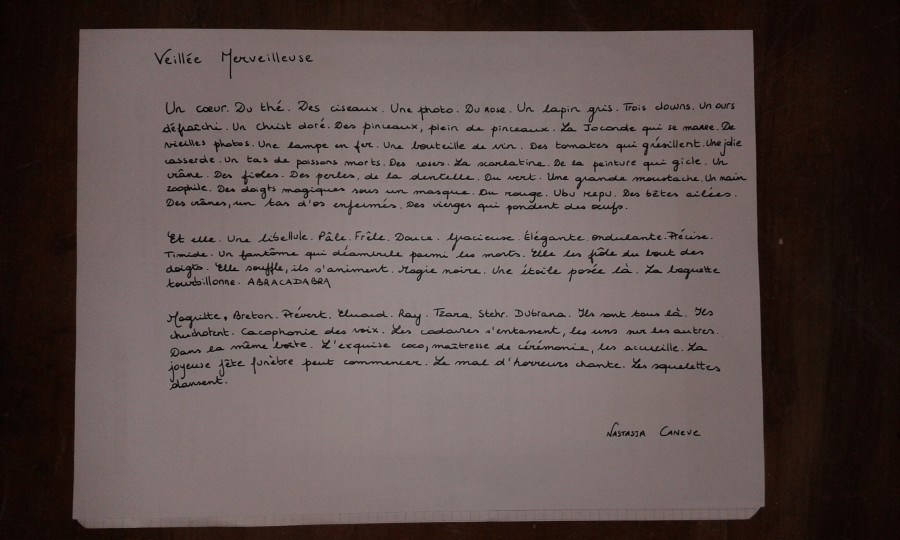 Veillée Merveilleuse
Un cœur. Du thé. Des ciseaux. Une photo. Du rose. Un lapin gris. Trois clowns. Un ours
défraîchi. Un Christ doré. Des pinceaux, plein de pinceaux. La Joconde qui se marre. De
vieilles photos. Une lampe en fer. Une bouteille de vin. Des tomates qui grésillent. Une jolie
casserole. Un tas de poissons morts. Des roses. La scarlatine. De la peinture qui gicle. Un
crâne. Des fioles. Des perles, de la dentelle. Du vert. Une grande moustache. Un nain
zoophile. Des doigts magiques sous un masque. Du rouge. Ubu repu. Des bêtes ailées.
Des crânes, un tas d'os enfermés. Des vierges qui pondent des œufs.
Et elle. Une libellule. Pâle. Frêle. Douce. Gracieuse. Élégante. Ondulante. Précise.
Timide. Un fantôme qui déambule parmi les morts. Elle les frôle du bout des
doigts. Elle souffle, ils s'animent. Magie noire. Une étoile posée là. La baguette
tourbillonne. ABRACADABRA
Magritte, Breton. Prévert. Eluard. Ray. Tzara. Stehr. Dubrana. Ils sont tous là. Ils
chuchotent. Cacophonie des voix. Les cadavres s'entassent, les uns sur les autres.
Dans la même boîte. L'exquise coco, maîtresse de cérémonie, les accueille. La
joyeuse fête funèbre peut commencer. Le mal d'horreurs chante. Les squelettes
dansent.
NASTASJA CANEVE